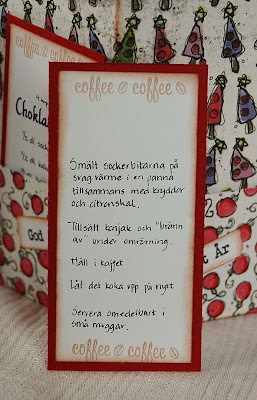 coffee coffee
Smält sockerbitarna på
svag värme i en panna
tillsammans med kryddor
och citronskal.
Tillsätt konjak och "bränn
av" under omrörning.
Häll i kaffet
Låt det koka upp på nytt
Servera omedelbart i
små muggar.
coffee coffee
coffee
4
Chokla
½ dl
½ dl
God
t År